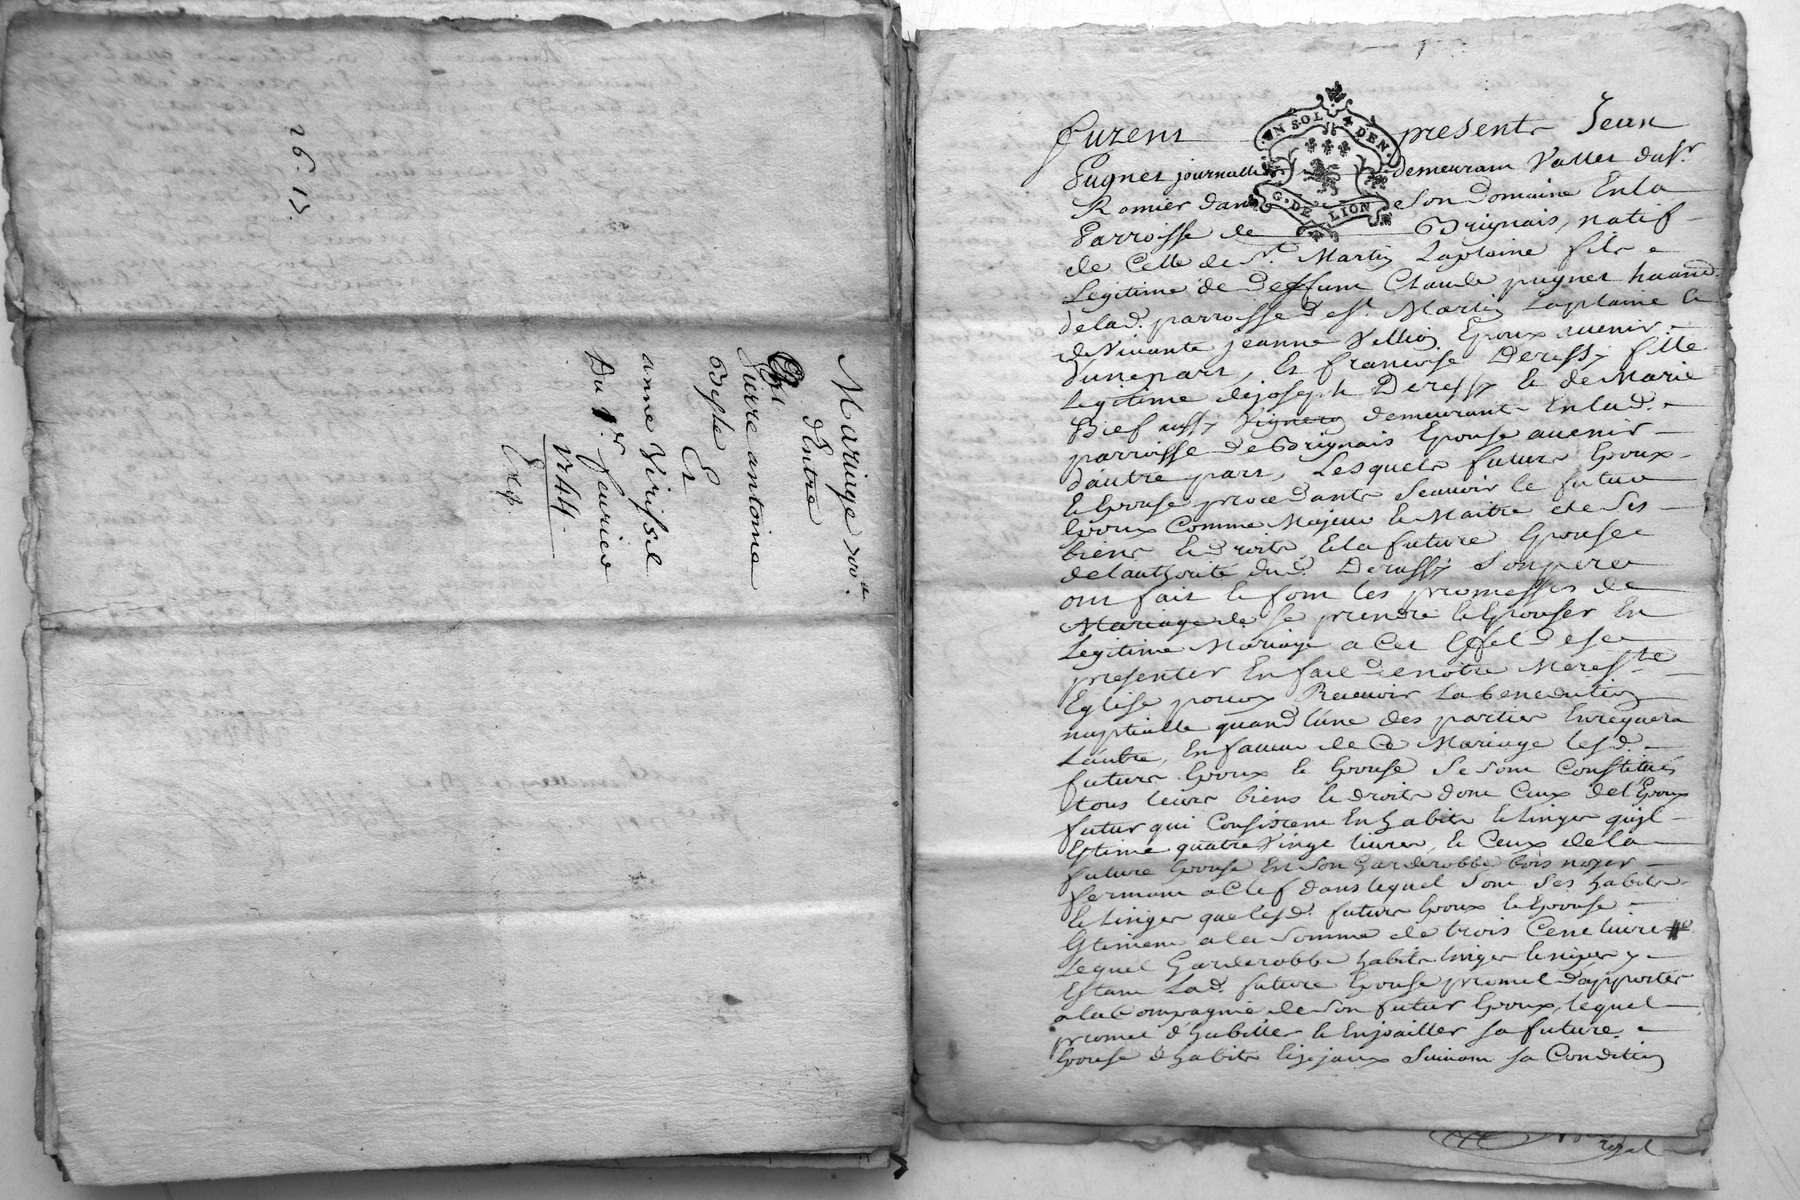 26. 17.
Mariage
d'Entre
Surre antoine
Beste
Et
anne Virissel
Du 1er feurier
1744
Exp.
furent presents Jean
UN SOL 4 DEN.
G. DE LION
Pugnet journallier demeurant Vallet du Sr.
Romier dans son Domaine En la
Parroisse de Brignais, natif
de Celle de St. Martin Laplaine fils
Legitime de deffunt Claude pugnet
de lad. parroisse de St. Martin Laplaine Et
de Vivante jeanne Epoux auenir
d'une part, Et francoise fille
Legitime de joseph Et de Marie
Bief aussy demeurante En lad.
parroisse de Brignais Epouse auenir
d'autre part, Lesquels futurs Epoux
Et Epouse procedants Scauoir le futur
Epoux Comme Majeur Et Maitre de Ses
biens Et droits Et la future Epouse
de l'authorité dud. Son pere
ont fait Et font les promesses de
Mariage de Se prendre Et Epouser En
Legitime Mariage a Cet Effet de se
presenter En face de notre Mere Ste
Eglise pour y Receuoir La benediction
nuptialle quand l'une des parties En requera
L'autre, En faueur de Ce Mariage lesd.
futurs Epoux Et Epouse Se sont Constitués
tous leurs biens Et droits dont Ceux de l'Epoux
futur qui Consistent En habits Et Linges quil
Estime quatre Vingt liures, Et Ceux de la
future Epouse En Son Garderobbe bois noyer
fermant a Clef dans lequel Sont Ses habits
Et Linges que lesd. futurs Epoux Et Epouse
Estiment a la Somme de trois Cent liures
Lequel Garderobbe habits linges
Estant Lad. future Epouse promet d'apporter
a la Compagnie de Son futur Epoux, lequel
promet d'habiller Et Enjoailler Sa future
Epouse d'habits Et joyaux Suiuant Sa Condition
royal